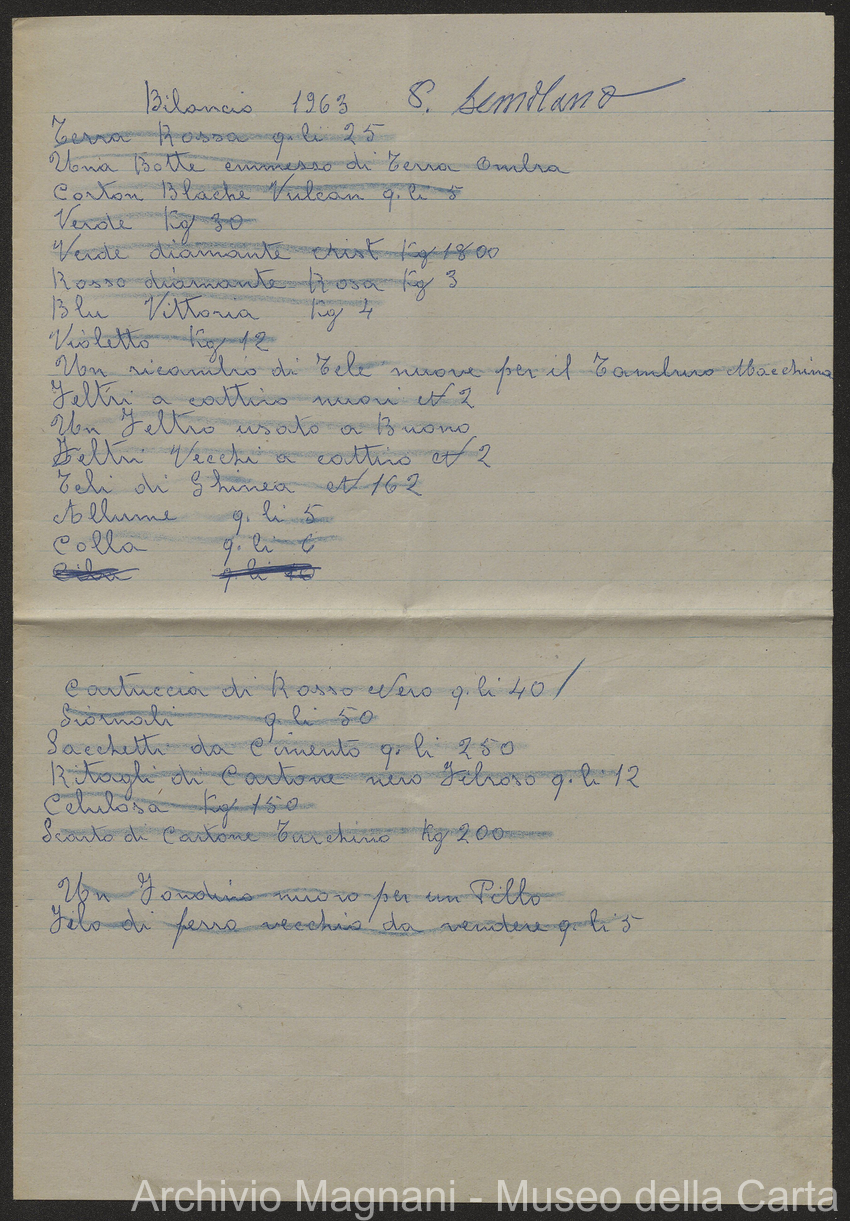 Bilancio 1963 S.
Terra Rossa q.li 25
Una Botte emmesso di Terra Ombra
Corton Blache Vulcan q.li 5
Verde Kg 30
Verde diamante crist Kg 1800
Rosso diamante Rosa Kg 3
Blu Vittoria Kg 4
Violetto Kg 12
Un ricambio di Tele nuove per il Tamburo Macchina
Feltri a cattivo nuovi N 2
Un Feltro usato a Buono
Feltri Vecchi a cattivo N 2
Teli di Ghinea N 162
Allume q.li 5
Colla q.li 6
q.li 10
Cartuccia di Rosso Nero q.li 40 /
Giornali q.li 50
Sacchetti da Cimento q.li 250
Ritagli di Cartone nero Felroso q.li 12
Celulosa Kg 150
Scarto di Cartone Turchino Kg 200
Un Fondino nuovo per un Pillo
Filo di ferro vecchio da vendere q.li 5
Archivio Magnani - Museo della Carta